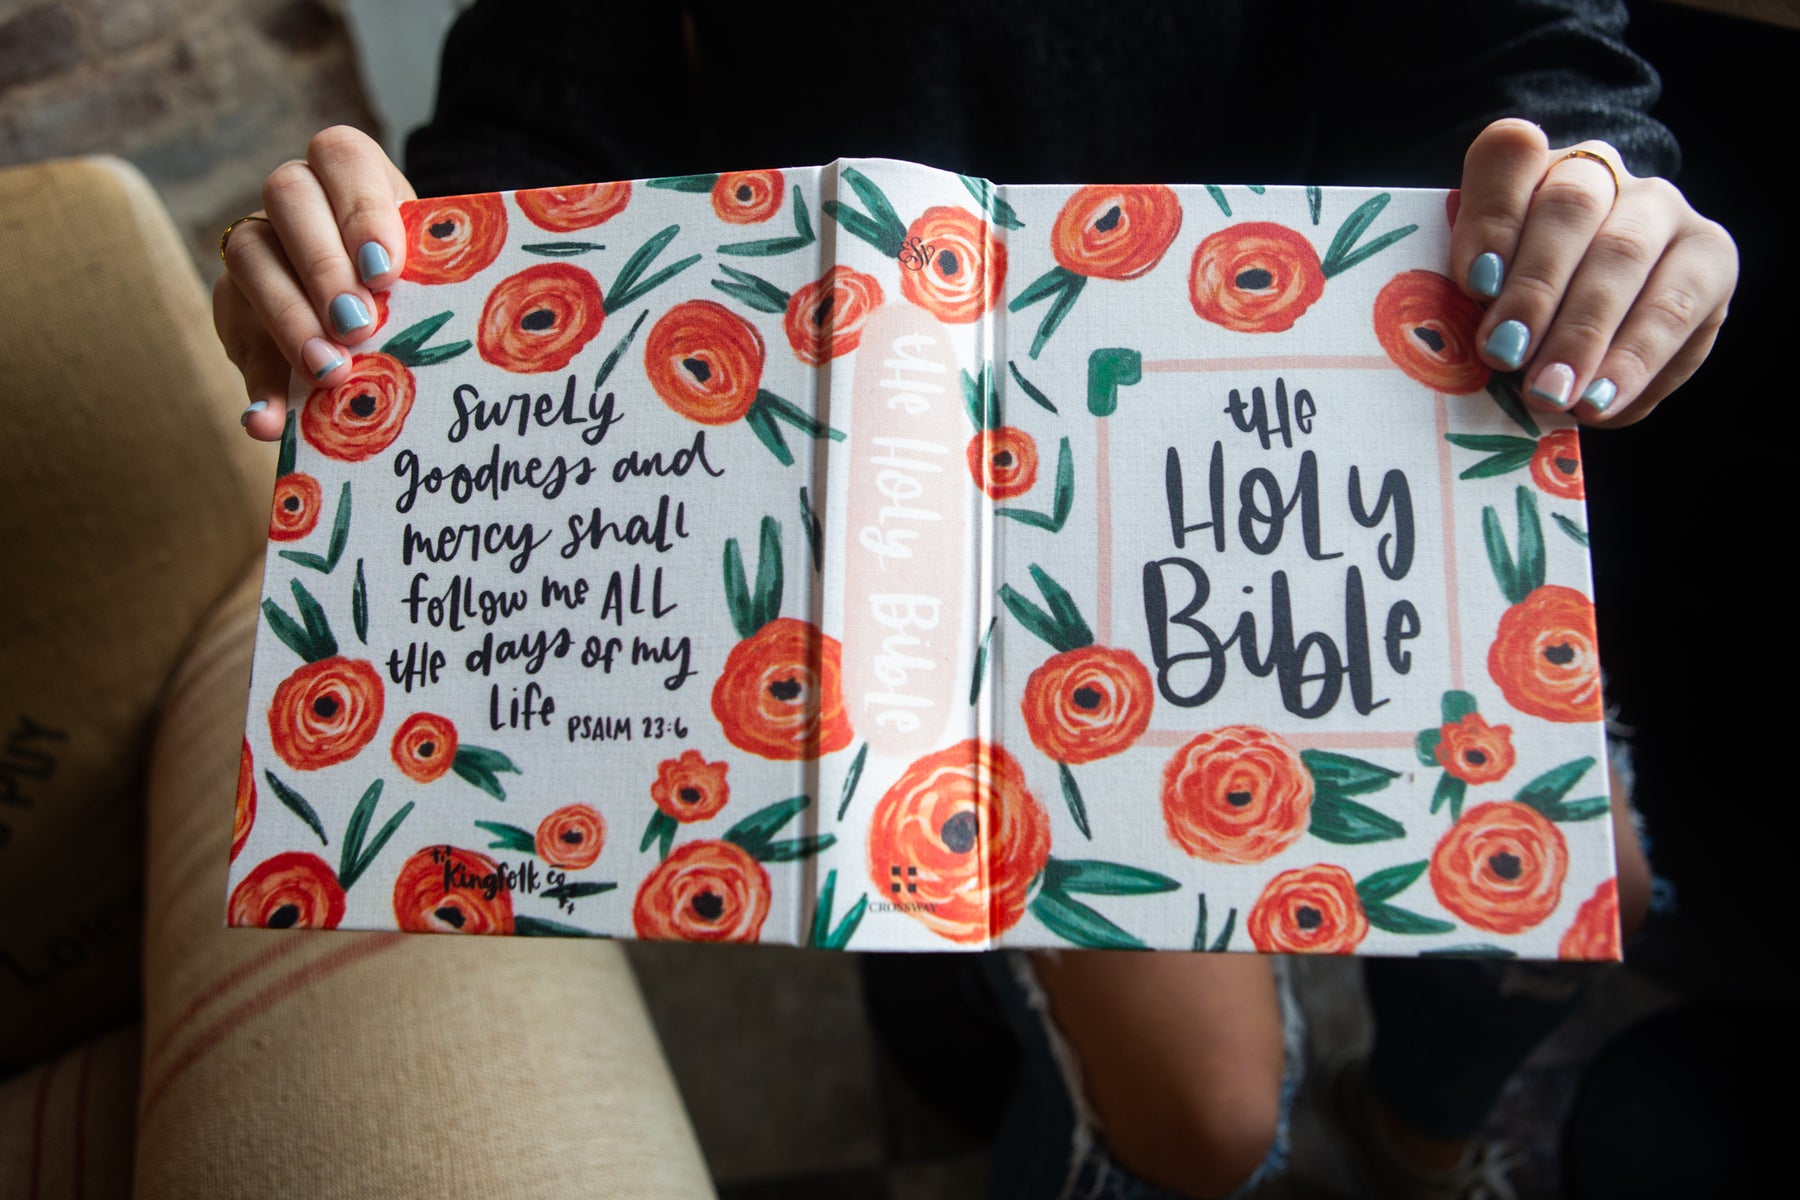 Surely
goodness and
mercy shall
follow me ALL
tHe days of my
Life
PSALM 23:6
Kingfolk co
ESV
tHe Holy Bible
CROSSWAY
tHe
HOLy
BibLe
PUY
Loir